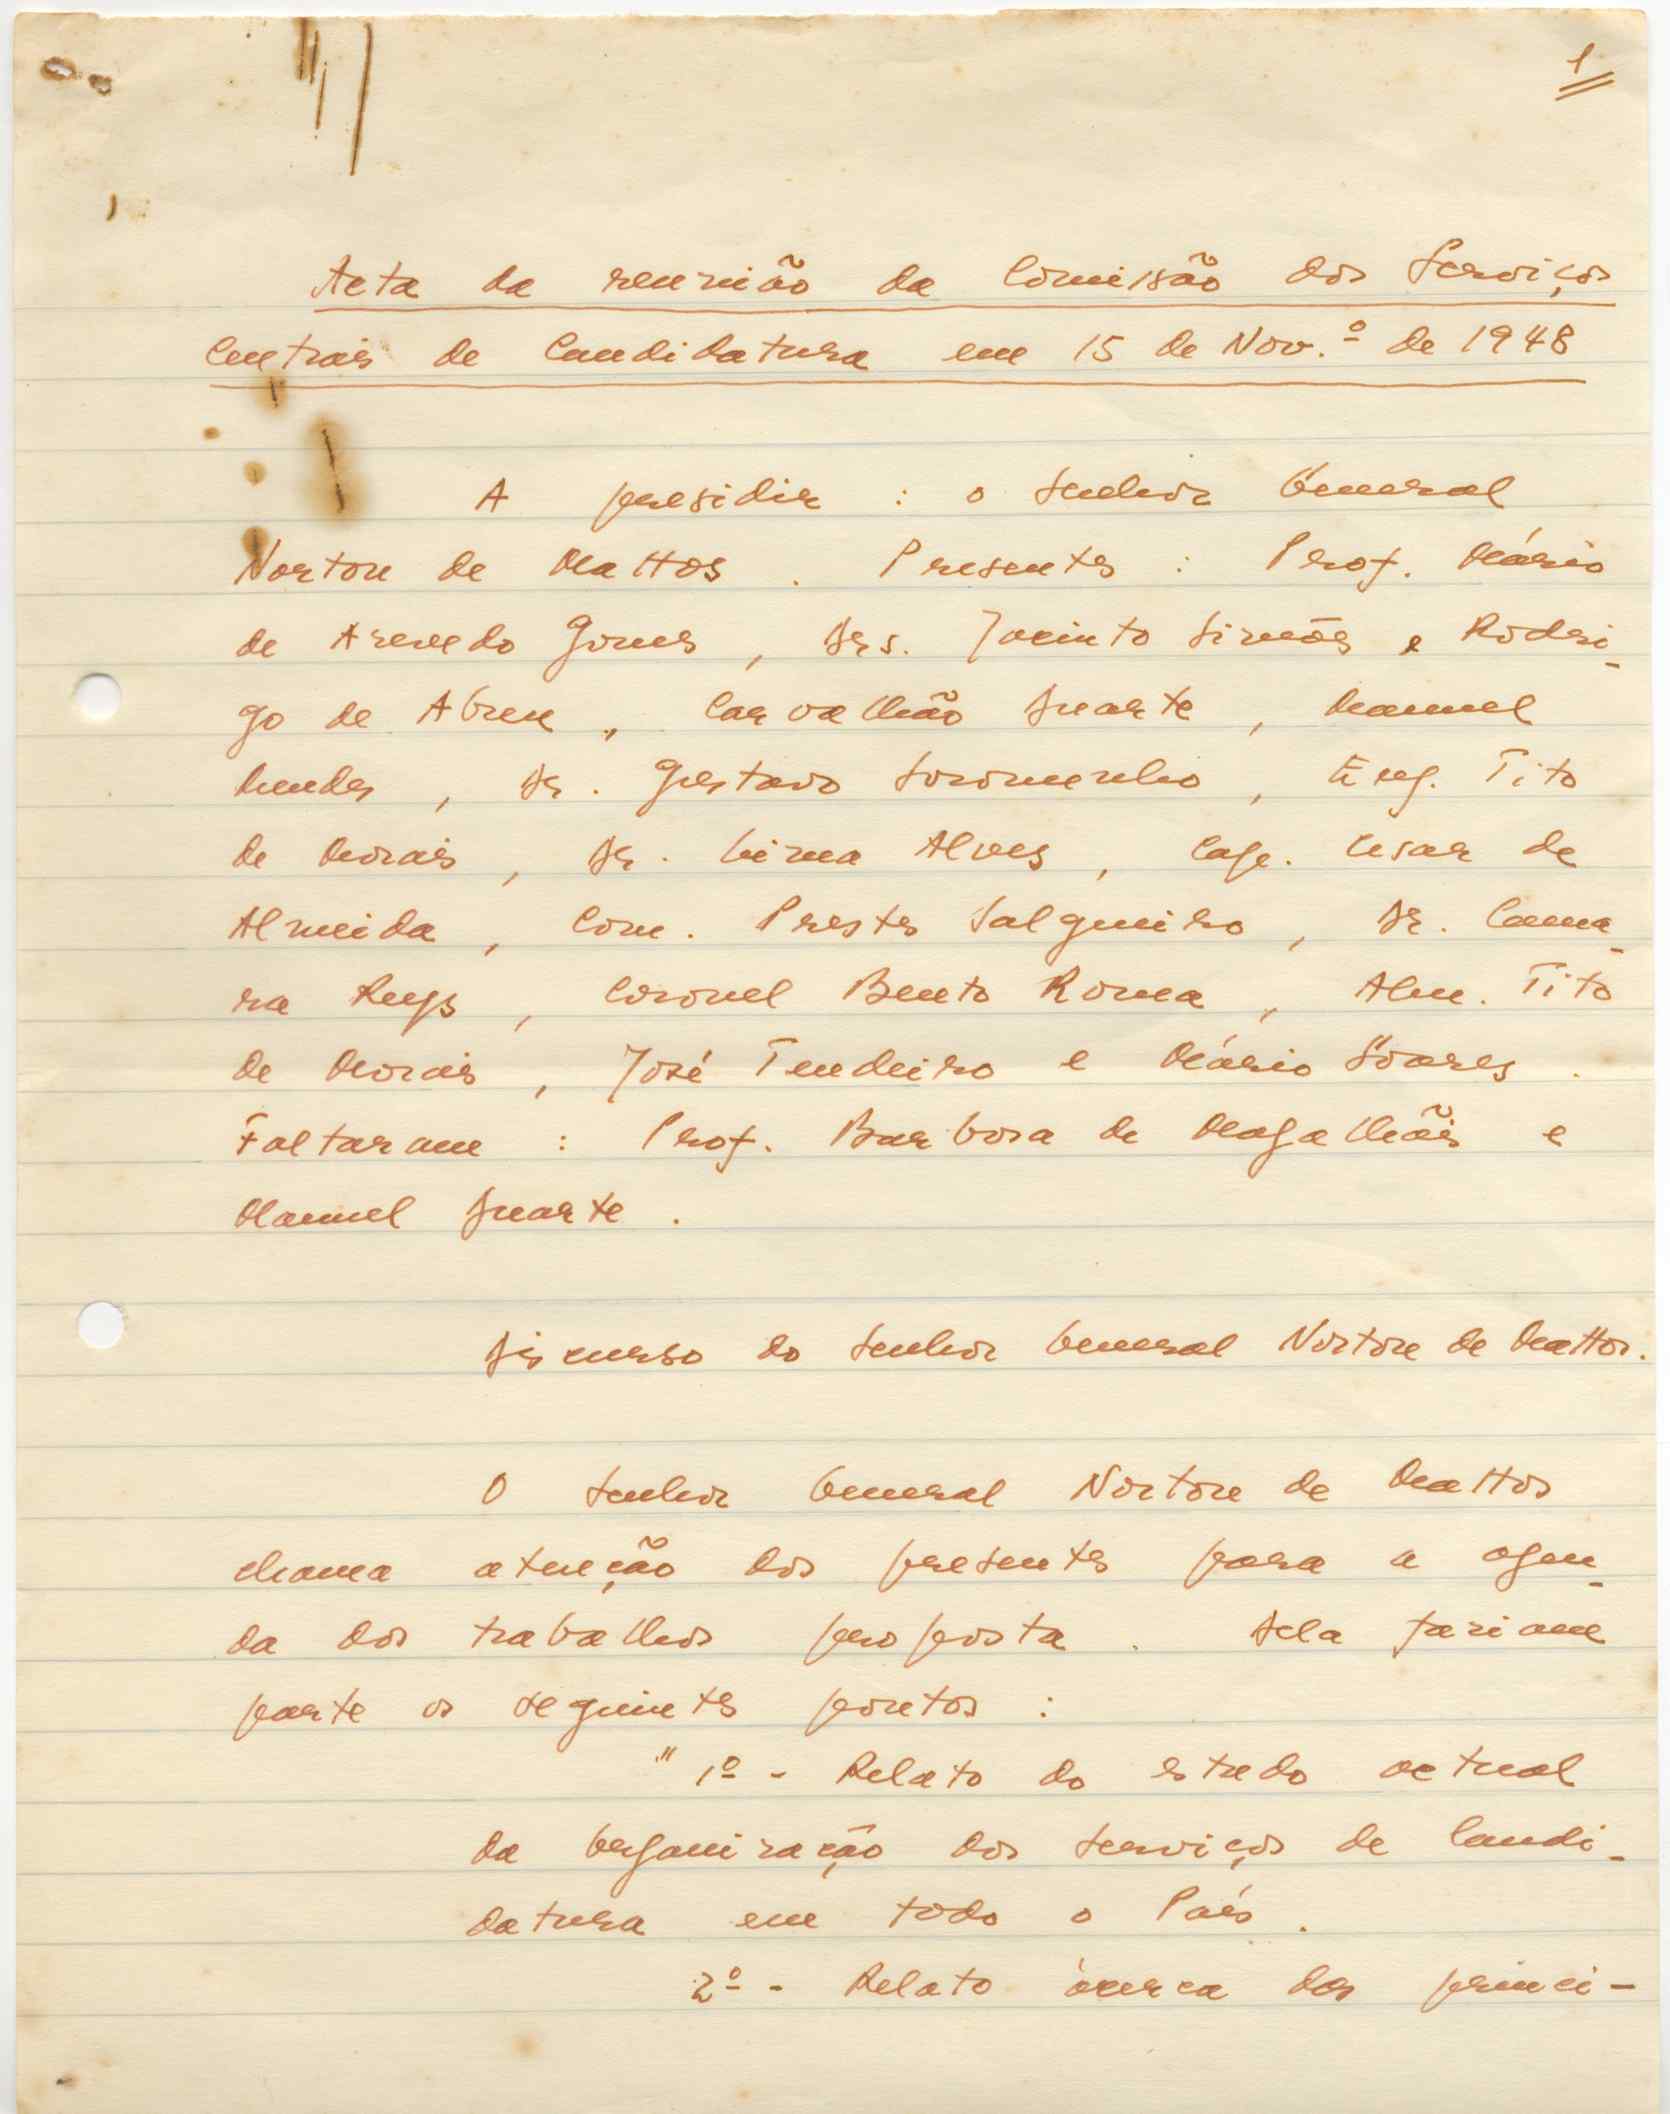 1
Acta da reunião da Comissão dos Serviços
Centrais de Candidatura em 15 de Nov.º de 1948
A presidir : o Senhor General
Norton de Mattos . Presentes : Prof. Mário
de Azevedo Gomes , Drs. Jacinto Simões e Rodri-
go de Abreu , Carvalhão Duarte , Manuel
Mendes , Dr. Gustavo Soromenho , Eng. Tito
de Morais , Dr. Lima Alves , Cap. Cesar de
Almeida , Com. Prestes Salgueiro , Dr. Cama-
ra Reys , Coronel Bento Roma , Alm. Tito
de Morais , José Tendeiro e Mário Soares .
Faltaram : Prof. Barbosa de Magalhães e
Manuel Duarte .
Discurso do Senhor General Norton de Mattos.
O Senhor General Norton de Mattos
chama atenção dos presentes para a agen-
da dos trabalhos proposta . Dela fariam
parte os seguintes pontos :
" 1º - Relato do estado actual
da Organização dos Serviços de Candi-
datura em todo o País .
2º - Relato àcerca dos princi-